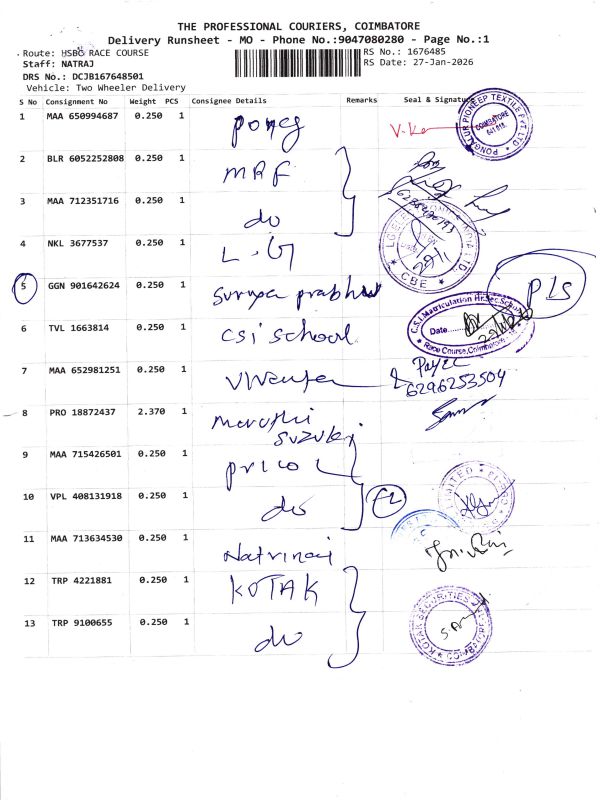 THE PROFESSIONAL COURIERS, COIMBATORE
Delivery Runsheet - MO - Phone No.:9047080280 - Page No.:1
Route: HSBC RACE COURSE
RS No.: 1676485
Staff: NATRAJ
RS Date: 27-Jan-2026
DRS No.: DCJB167648501
Vehicle: Two Wheeler Delivery
S No Consignment No Weight PCS Consignee Details Remarks Seal & Signature
1 MAA 650994687 0.250 1
V.Ke
PONGALUR PIONEER TEXTILE PVT LTD COIMBATORE
2 BLR 6052252808 0.250 1 MRF
3 MAA 712351716 0.250 1 do
4 NKL 3677537 0.250 1 L.G
CBE
5 GGN 901642624 0.250 1 surya prabha PLS
6 TVL 1663814 0.250 1 csi school
C.S.I. Matriculation Hr.Sec.School
Date
Race Course, Coimbatore
7 MAA 652981251 0.250 1
6296253504
8 PRO 18872437 2.370 1 maruthi
suzuki
9 MAA 715426501 0.250 1 pricol
10 VPL 408131918 0.250 1 do
11 MAA 713634530 0.250 1
12 TRP 4221881 0.250 1 KOTAK
KOTAK SECURITIES
13 TRP 9100655 0.250 1 do